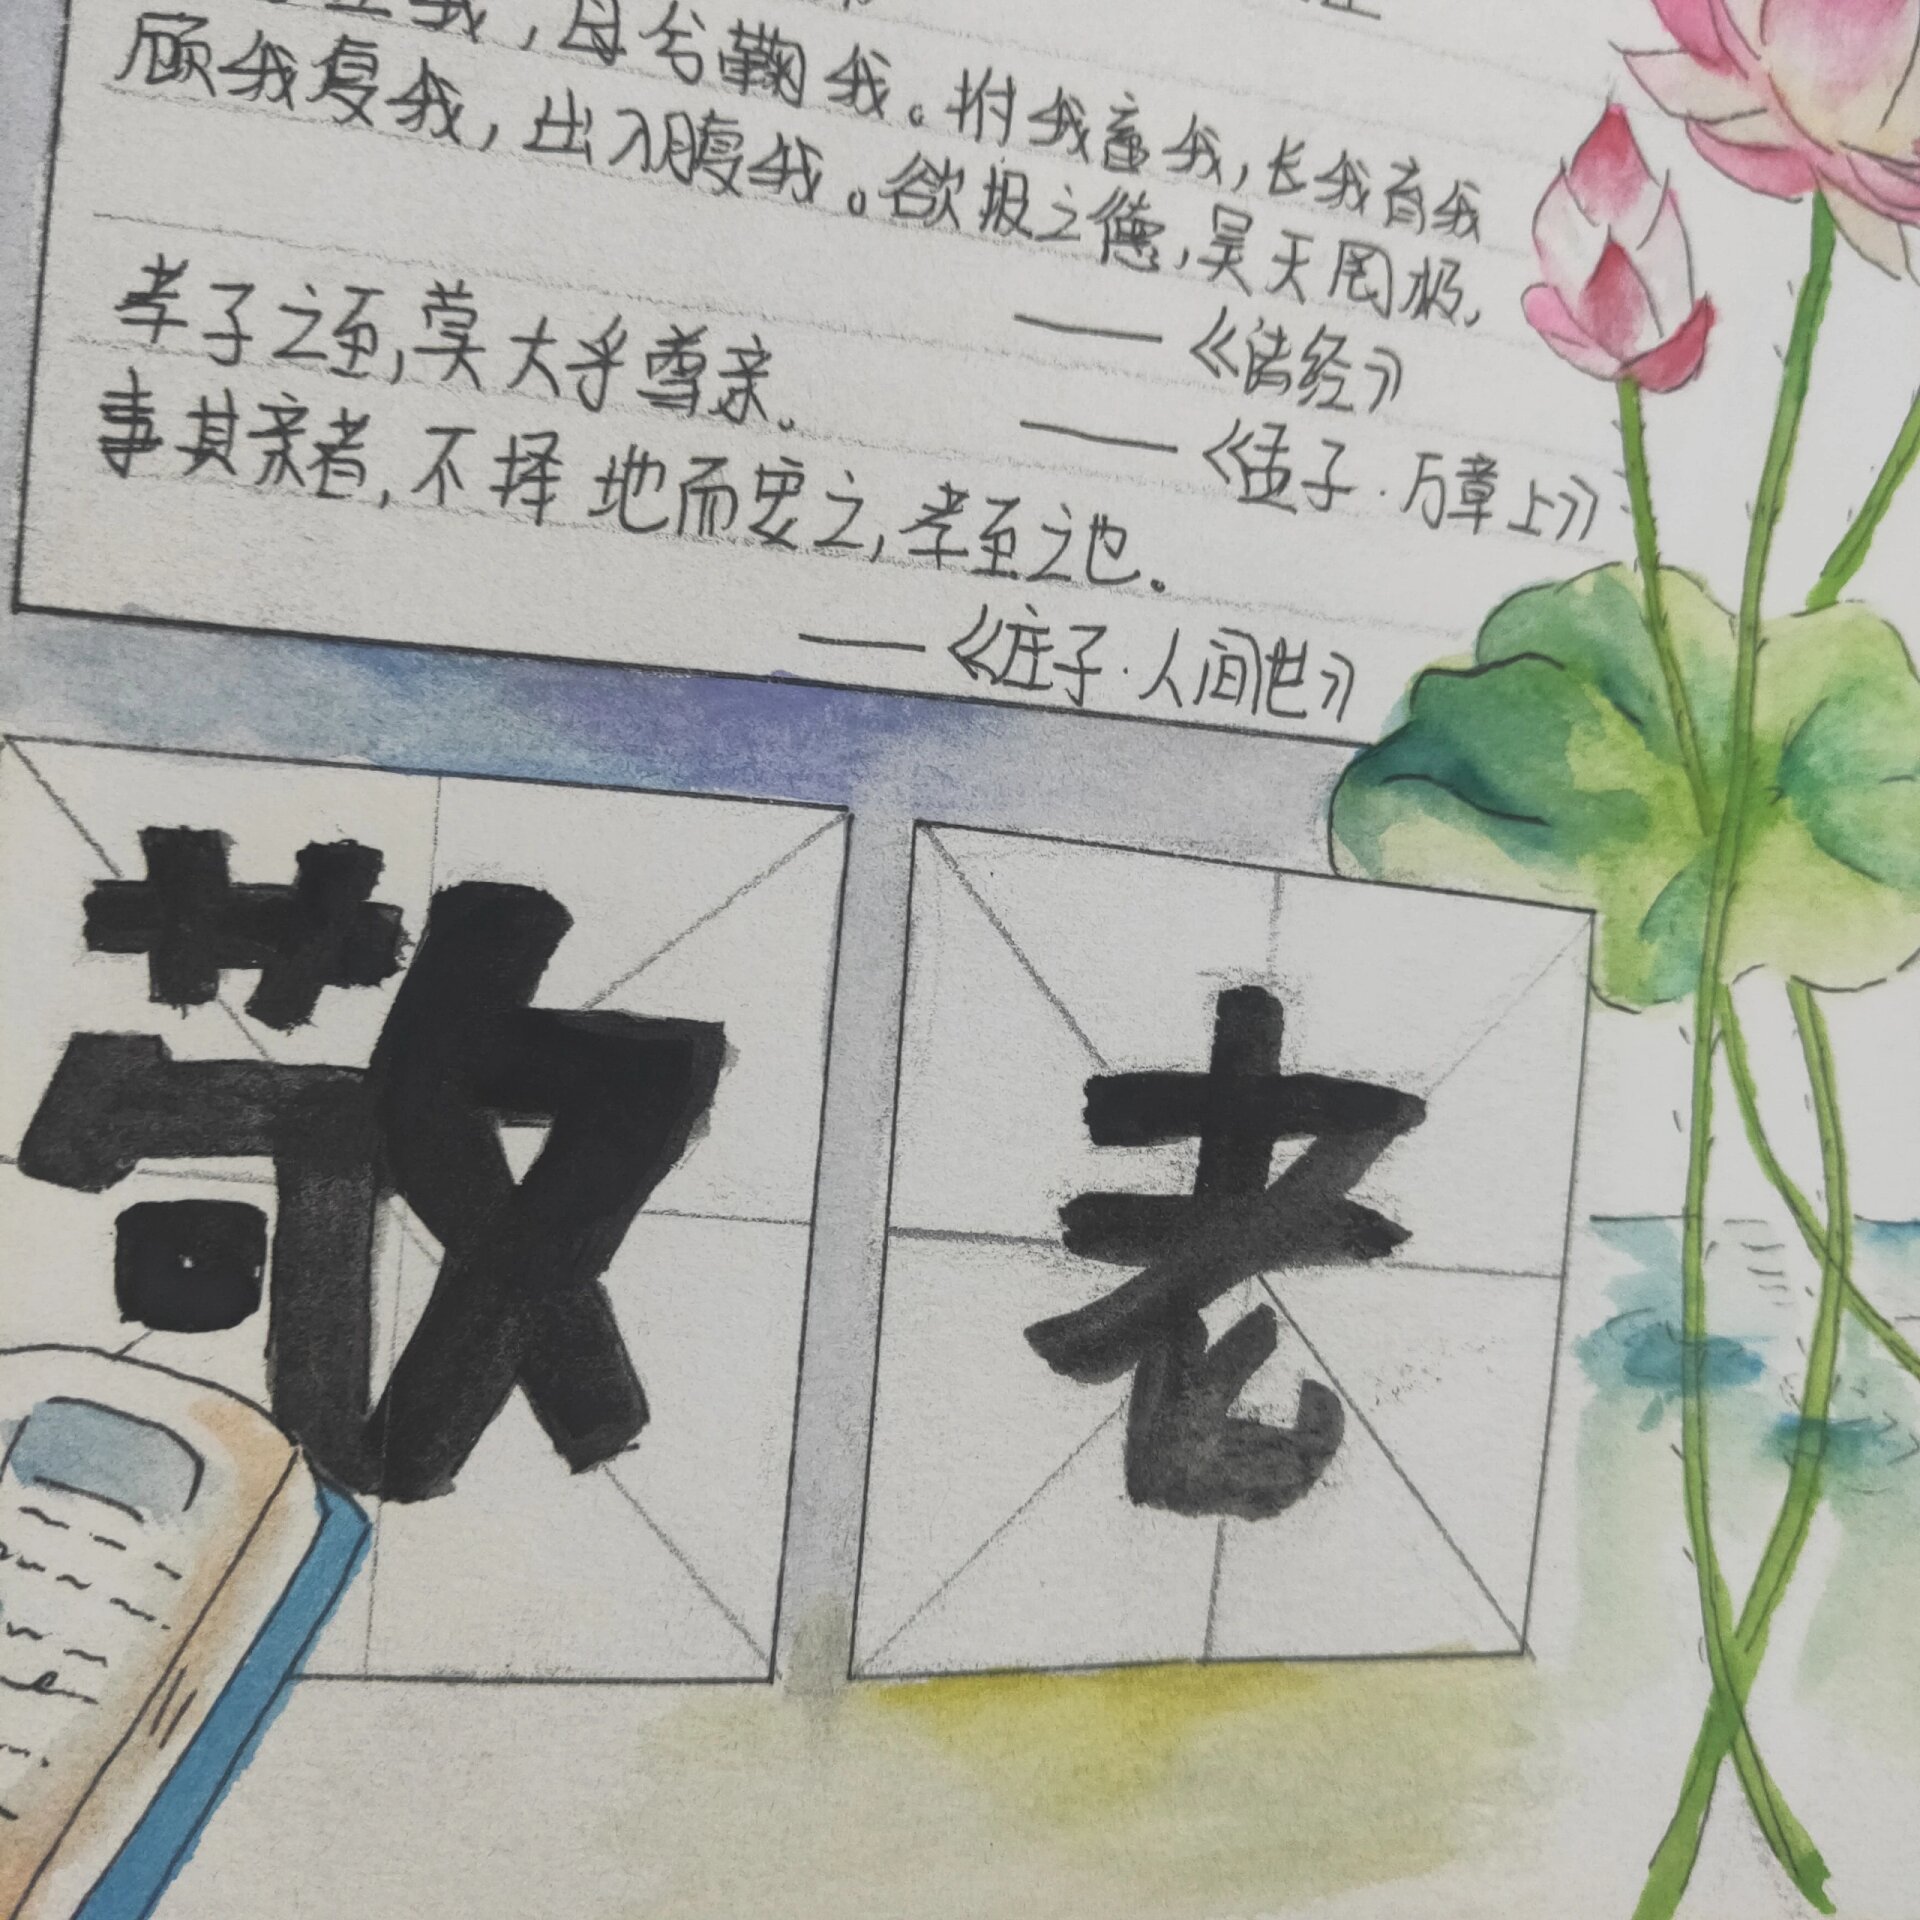 我，母兮鞠我。拊我畜我，长我育我
顾我复我，出入腹我。欲报之德，昊天罔极，
——《诗经》
孝子之至，莫大乎尊亲。
——《孟子·万章上》
事其亲者，不择地而安之，孝至之也。
——《庄子·人间世》
敬
老